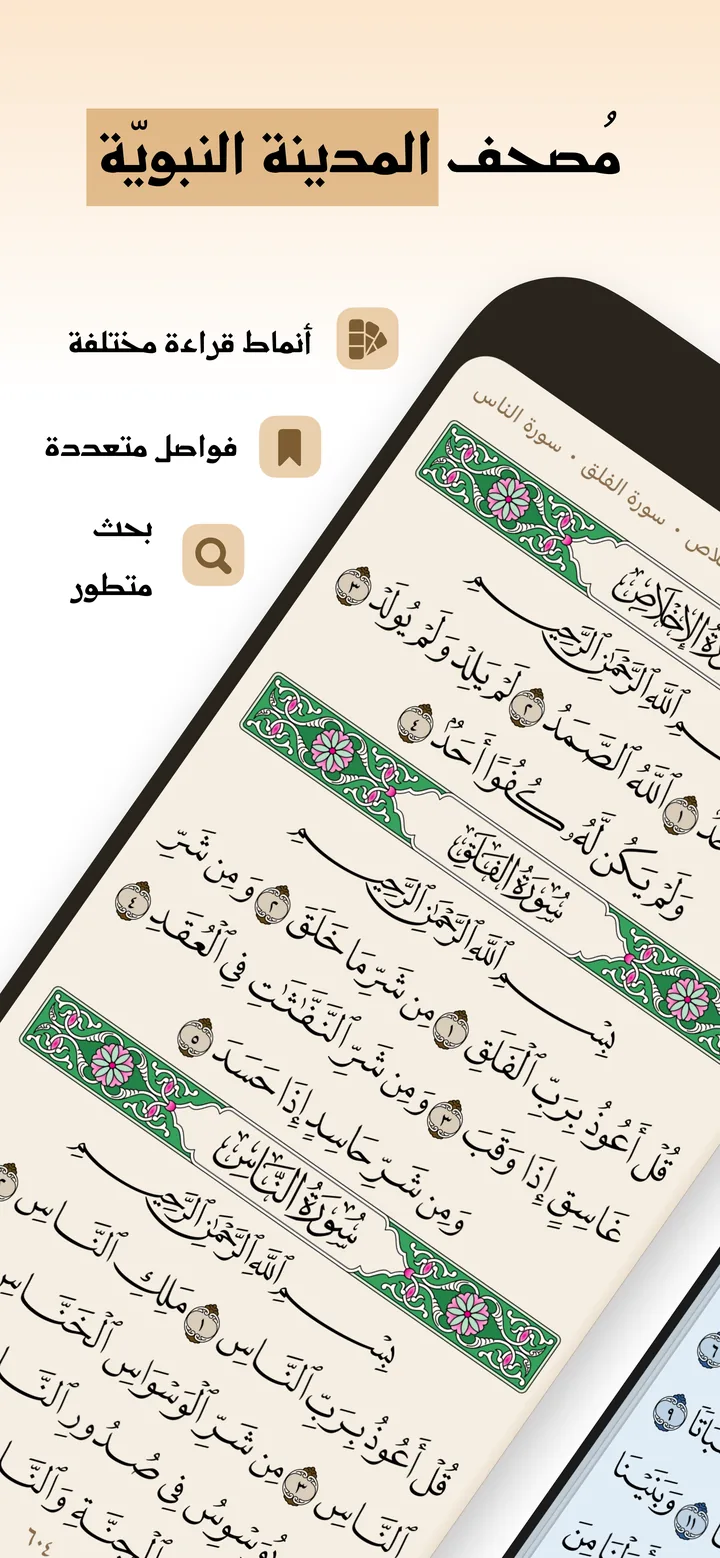 مُصحف المدينة النبويّة
أنماط قراءة مختلفة
فواصل متعددة
بحث
متطور
سورة الفلق • سورة الناس
سُورَةُ الإِخْلَاصِ
ٱللَّهِ ٱلرَّحْمَٰنِ ٱلرَّحِيمِ
١ ٱللَّهُ ٱلصَّمَدُ ٢ لَمْ يَلِدْ وَلَمْ يُولَدْ ٣
وَلَمْ يَكُن لَّهُۥ كُفُوًا أَحَدٌۢ ٤
سُورَةُ الفَلَقِ
بِسْمِ ٱللَّهِ ٱلرَّحْمَٰنِ ٱلرَّحِيمِ
قُلْ أَعُوذُ بِرَبِّ ٱلْفَلَقِ ١ مِن شَرِّ مَا خَلَقَ ٢ وَمِن شَرِّ
غَاسِقٍ إِذَا وَقَبَ ٣ وَمِن شَرِّ ٱلنَّفَّٰثَٰتِ فِى ٱلْعُقَدِ ٤
وَمِن شَرِّ حَاسِدٍ إِذَا حَسَدَ ٥
سُورَةُ النَّاسِ
بِسْمِ ٱللَّهِ ٱلرَّحْمَٰنِ ٱلرَّحِيمِ
قُلْ أَعُوذُ بِرَبِّ ٱلنَّاسِ ١ مَلِكِ ٱلنَّاسِ ٢
ٱلنَّاسِ ٣ مِن شَرِّ ٱلْوَسْوَاسِ ٱلْخَنَّاسِ
يُوَسْوِسُ فِى صُدُورِ
ٱلْجِنَّةِ
٦٠٤
٦
٩
وَبَنَيْنَا
١١